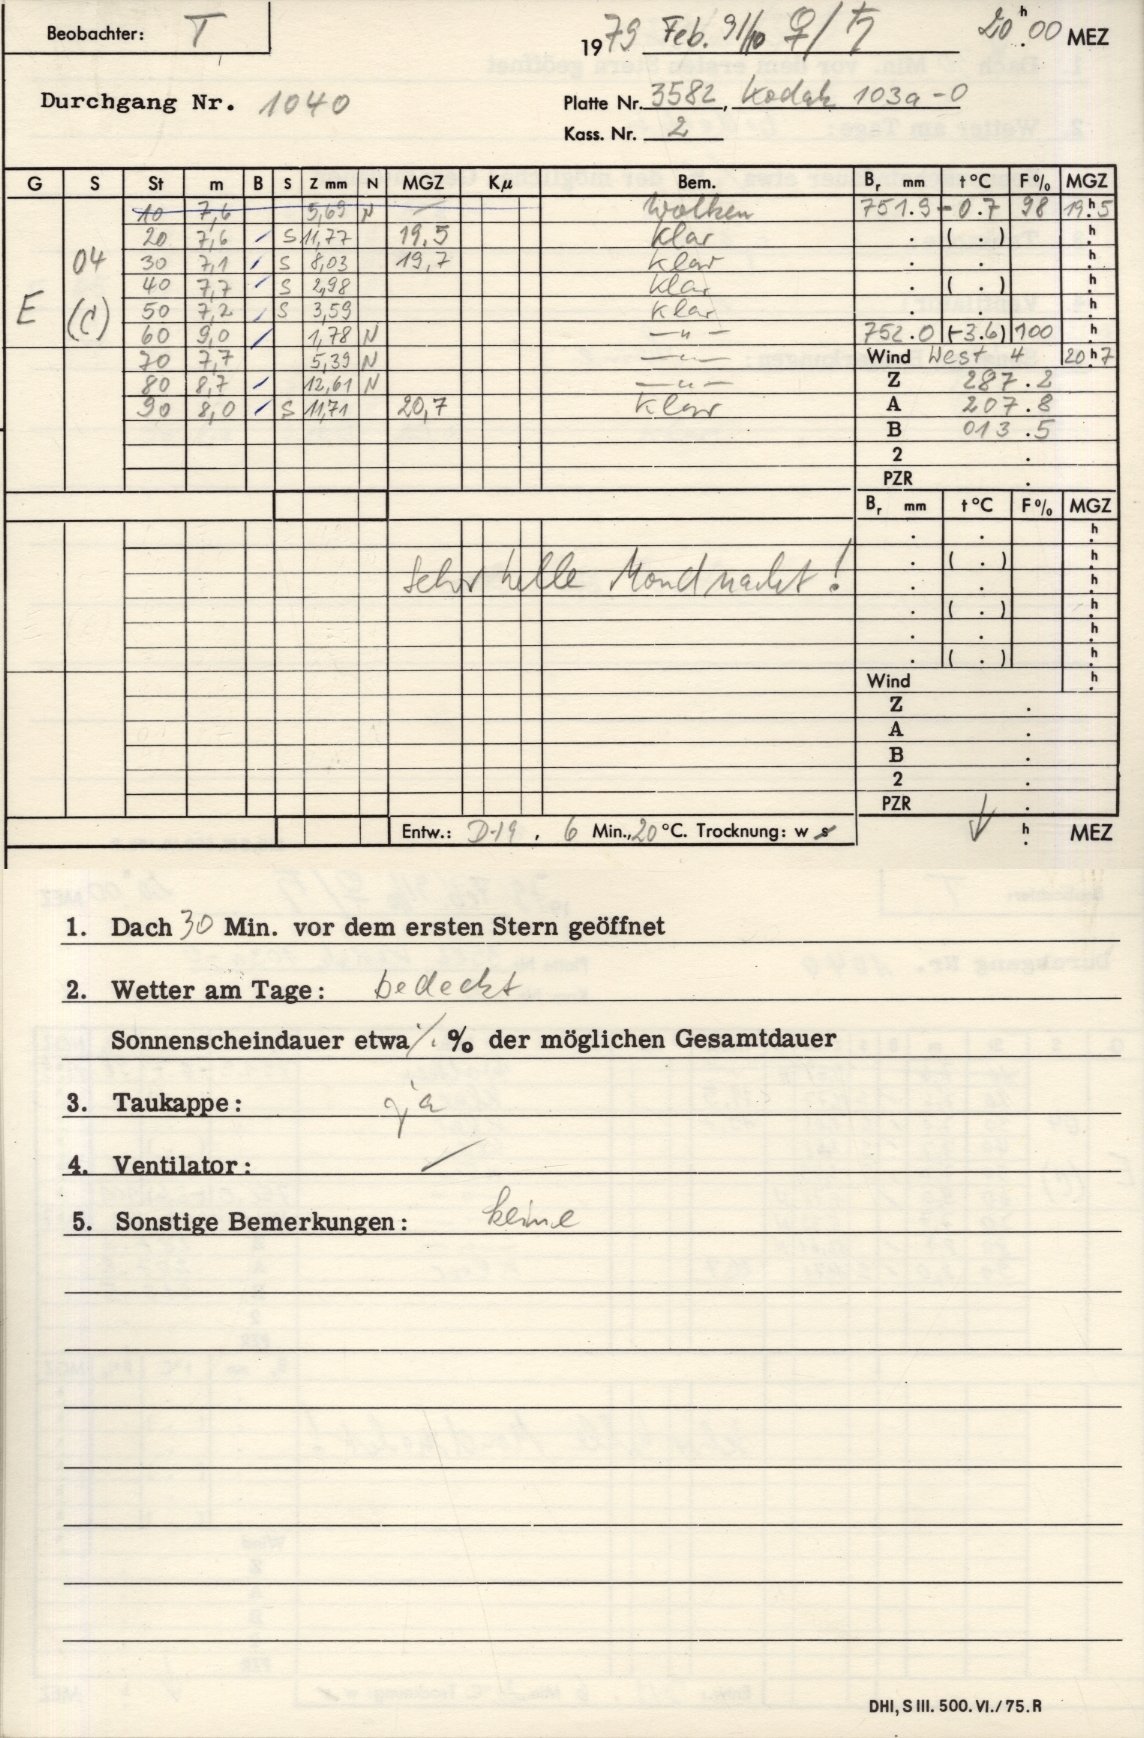 Beobachter: T
1979 Feb. 9/10 ♀/♄ 20ʰ.00 MEZ
Durchgang Nr. 1040
Platte Nr. 3582, Kodak 103a-O
Kass. Nr. 2
G S St m B S Z mm N MGZ Kμ Bem. Bᵣ mm t°C F% MGZ
10 7,6 5,69 N — Wolken 751.9 -0.7 98 19ʰ.5
20 7,6 / S 11,77 19,5 klar . ( . ) ʰ.
04 30 7,1 / S 8,03 19,7 klar . . ʰ.
40 7,7 / S 2,98 klar . ( . ) ʰ.
E (C) 50 7,2 / S 3,59 klar . . ʰ.
60 9,0 / 1,78 N —"— 752.0 (-3.6) 100 ʰ.
70 7,7 5,39 N —"— Wind West 4 20ʰ.7
80 8,7 / 12,61 N —"— Z 287.2
90 8,0 / S 11,71 20,7 klar A 207.8
B 013.5
2 .
PZR .
Bᵣ mm t°C F% MGZ
. . ʰ.
. ( . ) ʰ.
Sehr helle Mondnacht! . . ʰ.
. ( . ) ʰ.
. . ʰ.
. ( . ) ʰ.
Wind ʰ.
Z .
A .
B .
2 .
PZR .
Entw.: D-19, 6 Min., 20 °C. Trocknung: w s ↓ ʰ. MEZ
1. Dach 30 Min. vor dem ersten Stern geöffnet
2. Wetter am Tage: bedeckt
Sonnenscheindauer etwa ·/. % der möglichen Gesamtdauer
3. Taukappe: ja
4. Ventilator: /
5. Sonstige Bemerkungen: keine
DHI, S III. 500. VI./75. R